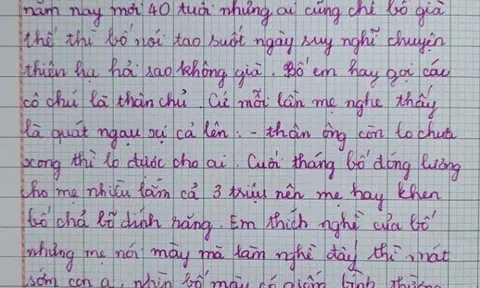 năm nay mới 40 tuổi nhưng ai cũng chỉ bố già
thế thì bố nói tao suốt ngày suy nghĩ chuyện
thiên hạ hỏi sao không già. Bố em hay gọi các
cô chú là thân chủ. Cứ mỗi lần mẹ nghe thấy
là quát ngau xị cả lên: - thân ông còn lo chưa
xong thì lo được cho ai. Cuối tháng bố đóng lương
cho mẹ nhiều lắm cả 3 triệu nên mẹ hay khen
bố chả bõ dính răng. Em thích nghề của bố
nhưng mẹ nói mày mà làm nghề đấy thì mát
sớm con ạ, nhìn bố mày có giống bình thường